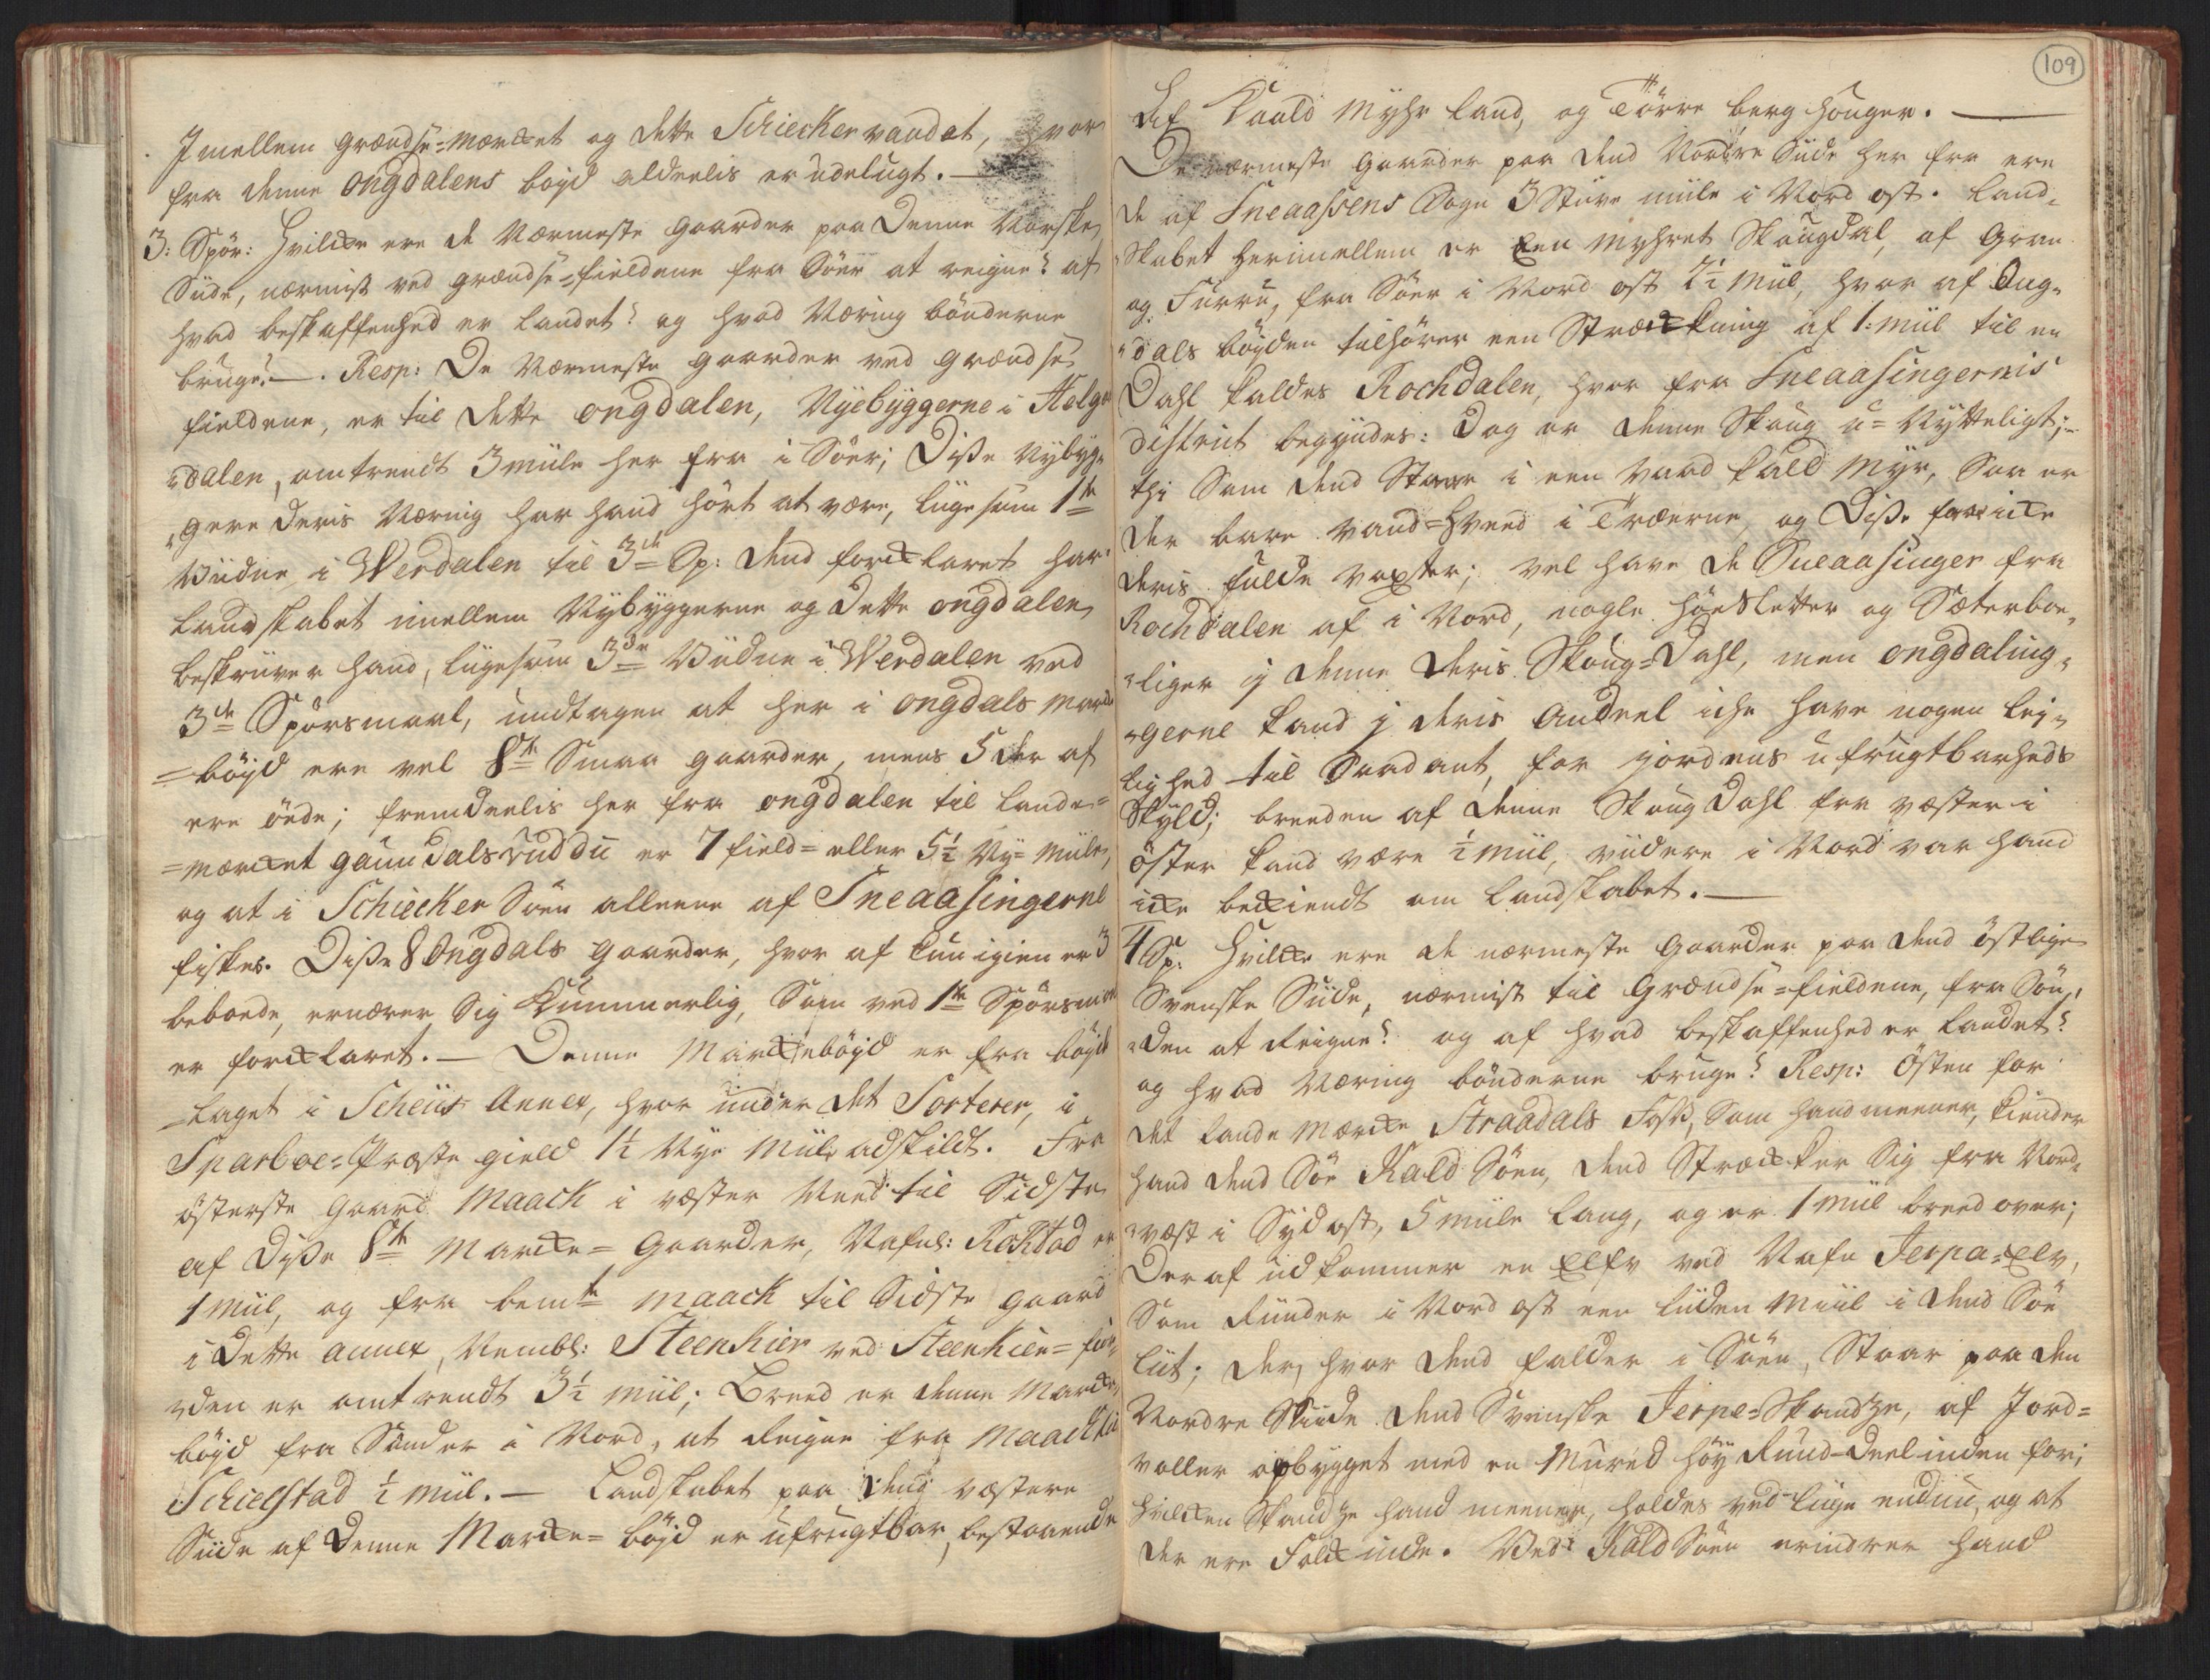 Jmellem grændse=mærcket og dette Schiecker vandet, hvor
fra denne ongdalens bøyd aldeelis er udelugt. —
3: Spör: Hvilcke ere de Nærmeste gaarder paa Denne Norske
Siide, nærmist ved grændse=fieldene fra Söer at reigne? af
hvad beskaffenhed er landet? og hvad Næring bönderne
bruge? —. Resp: De Nærmeste gaarder ved grændse
fieldene, er til dette ongdalen, Nyebyggerne i Helge
=dalen, omtrendt 3 miile her fra i Söer; Disse Nybyg=
=gere deris Næring har hand hört at være, liigesom 1te
Viidne i Werdalen til 3de Sp: dend forcklaret har.
Landskabet imellem Nybyggerne og dette ongdalen,
beskriiver hand, liigesom 3de Viidne i Werdalen ved
3de Spörsmaal, undtagen at her i ongdals marcke
=böyd ere vel 8te Smaa gaarder, mens 5 der af
ere öede; fremdeelis her fra ongdalen til lande=
=mærcket gaundalsruddu er 7 field= eller 5½ Ny= miile,
og at i Schiecker Söen alleene af Sneaasingerne
fiskes. Disse 8 Ongdals gaarder, hvor af kun igien er 3
beboede, ernærer Sig Kummerlig, Som ved 1te Spörsmaal
er forcklaret. — Denne Marckebøyd er fra böyde
=laget i Scheiis Annex, hvor under det Sorterer, i
Sparboe= Præste gield 1½ Nye Miile adskildt. Fra
österste gaard Maack i væster Neer til Sidste
af disse 8te Marcke= Gaarder, Nafnl: Rokstad er
1 miil, og fra bemte maack til Sidste gaard
i dette annex, Nembl: Steenkier ved Steenkier= fior
=den er omtrendt 3½ miil; Breed er denne Marcke
böyd fra Sönder i Nord, at reigne fra Maack til
Schielstad ½ miil. — Landskabet paa dend væstere
Siide af Denne Marcke= böyd er ufrugtbar, bestaaende
109
Af Kaald Myhr land, og Törre berg houger. —
De nærmeste gaarder paa dend Nordre Siide her fra ere
de af Sneaassens Sogn 3 Stive miile i Nord ost. Land=
=skabet herimellem er Een myhret Skougdal, af Gran
og Furru, fra Söer i Nord ost 2½ Miil, hvor af Ong=
=dals böyden tilhörer een Stræckning af 1: miil til en
Dahl kaldes Rochdalen, hvor fra Sneaasingernis
district begyndes: Dog er denne Skoug u= Nytteligt;
thi Som dend Staar i een Vaad kald Myr, Saa er
der bare Vand= Hveed i Træerne, og Disse faar icke
deris fulde væxter; vel have de Sneaasinger fra
Rochdalen af i Nord, nogle höeSletter og Sæterboe=
=liger ij denne deris Skoug= Dahl, men ongdaling=
=gerne kand j deris Andeel iche have nogen lej=
lighed til Saadant, for jordens ufrugtbarheds
Skyld; breeden af denne Skoug Dahl fra væster i
öster kand være ½ miil, viidere i Nord var hand
icke beckiendt om landskabet. —
4 Sp: Hvilcke ere de nærmeste Gaarder paa dend östlige
Svenske Siide, nærmist til Grændse=fieldene, fra Sön=
=den at Reigne? og af hvad beskaffenhed er landet?
og hvad Næring bönderne bruge? Resp: Östen for
det lande Mærcke Straadals Foss, Som hand meener, kiender
hand dend Söe Kald Söen, dend Stræcker Sig fra Nord=
=væst i Syd ost, 5 miile lang, og er 1 miil breed over;
Deraf udkommer en Elfv ved Nafn Jerpa= Elv,
Som Runder i Nord ost een liiden Miil i dend Söe
liit; der, hvor dend falder i Söen, Staar paa den
Nordre Siide dend Svenske Jerpe= Skandze, af Jord=
voller opbygget med en Mured höy Rund=deel inden for;
hvilcken Skandze hand meener, holdes ved liige endnu, og at
der ere Folck inde. Ved Kald Söen erindrer hand